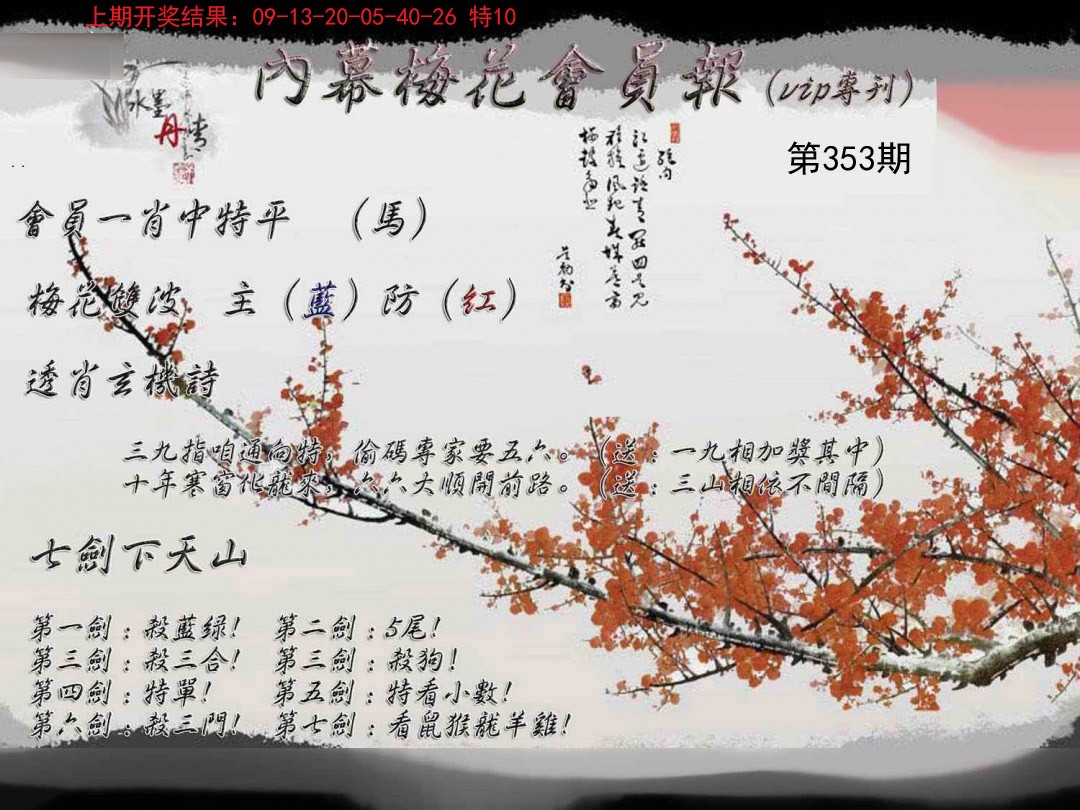 上期开奖结果：09-13-20-05-40-26 特10
內幕梅花會員報（vip專刊）
水墨
丹
情
第353期
會員一肖中特平 （馬）
梅花雙波 主（藍）防（紅）
透肖玄機詩
三九指咱通向特，偷碼專家要五六。（送：一九相加獎其中）
十年寒窗化龍來，六六大順開前路。（送：三山相依不間隔）
七劍下天山
第一劍：殺藍绿！ 第二劍：5尾！
第三劍：殺三合！ 第三劍：殺狗！
第四劍：特單！ 第五劍：特看小數！
第六劍：殺三門！ 第七劍：看鼠猴龍羊雞！